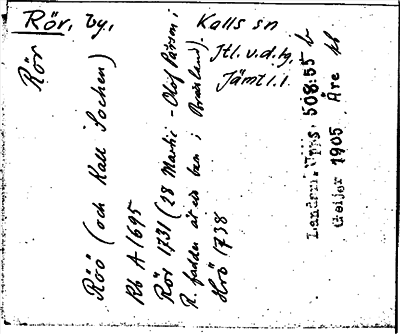 Rör, by,
Kalls sn
Jtl. v.d.tg.
Jämtl. l.
Rör
Röö (och Kall Sochen)
Rb A 1695
Rör 1731 (28 Martii - Olof Pärson i
R. fadder åt en barn i
Hrö 1738
Landsm. Upps. 508:55 b
Geijer 1905 Åre hd